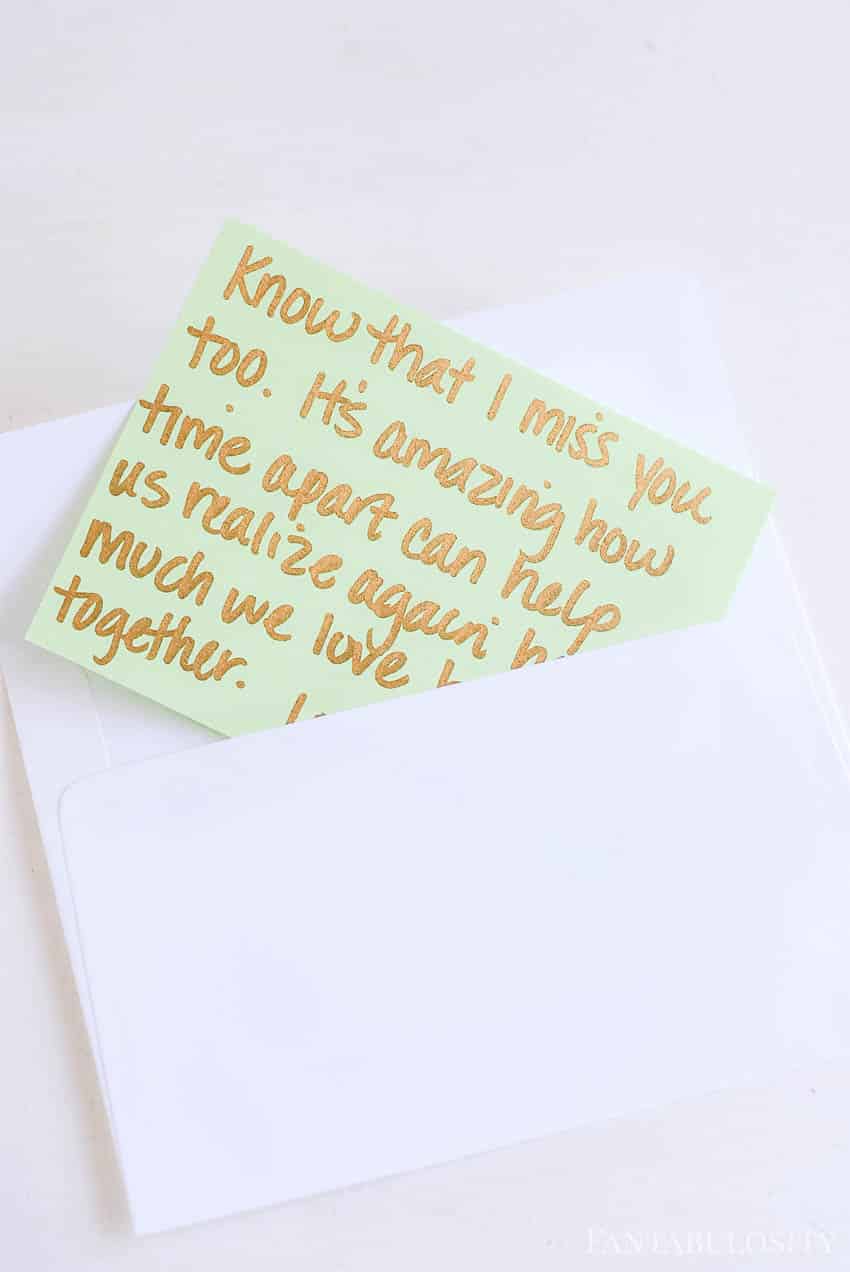 Know that I miss you
too. It's amazing how
time apart can help
us realize again
much we love
together.
FANTABULOSITY